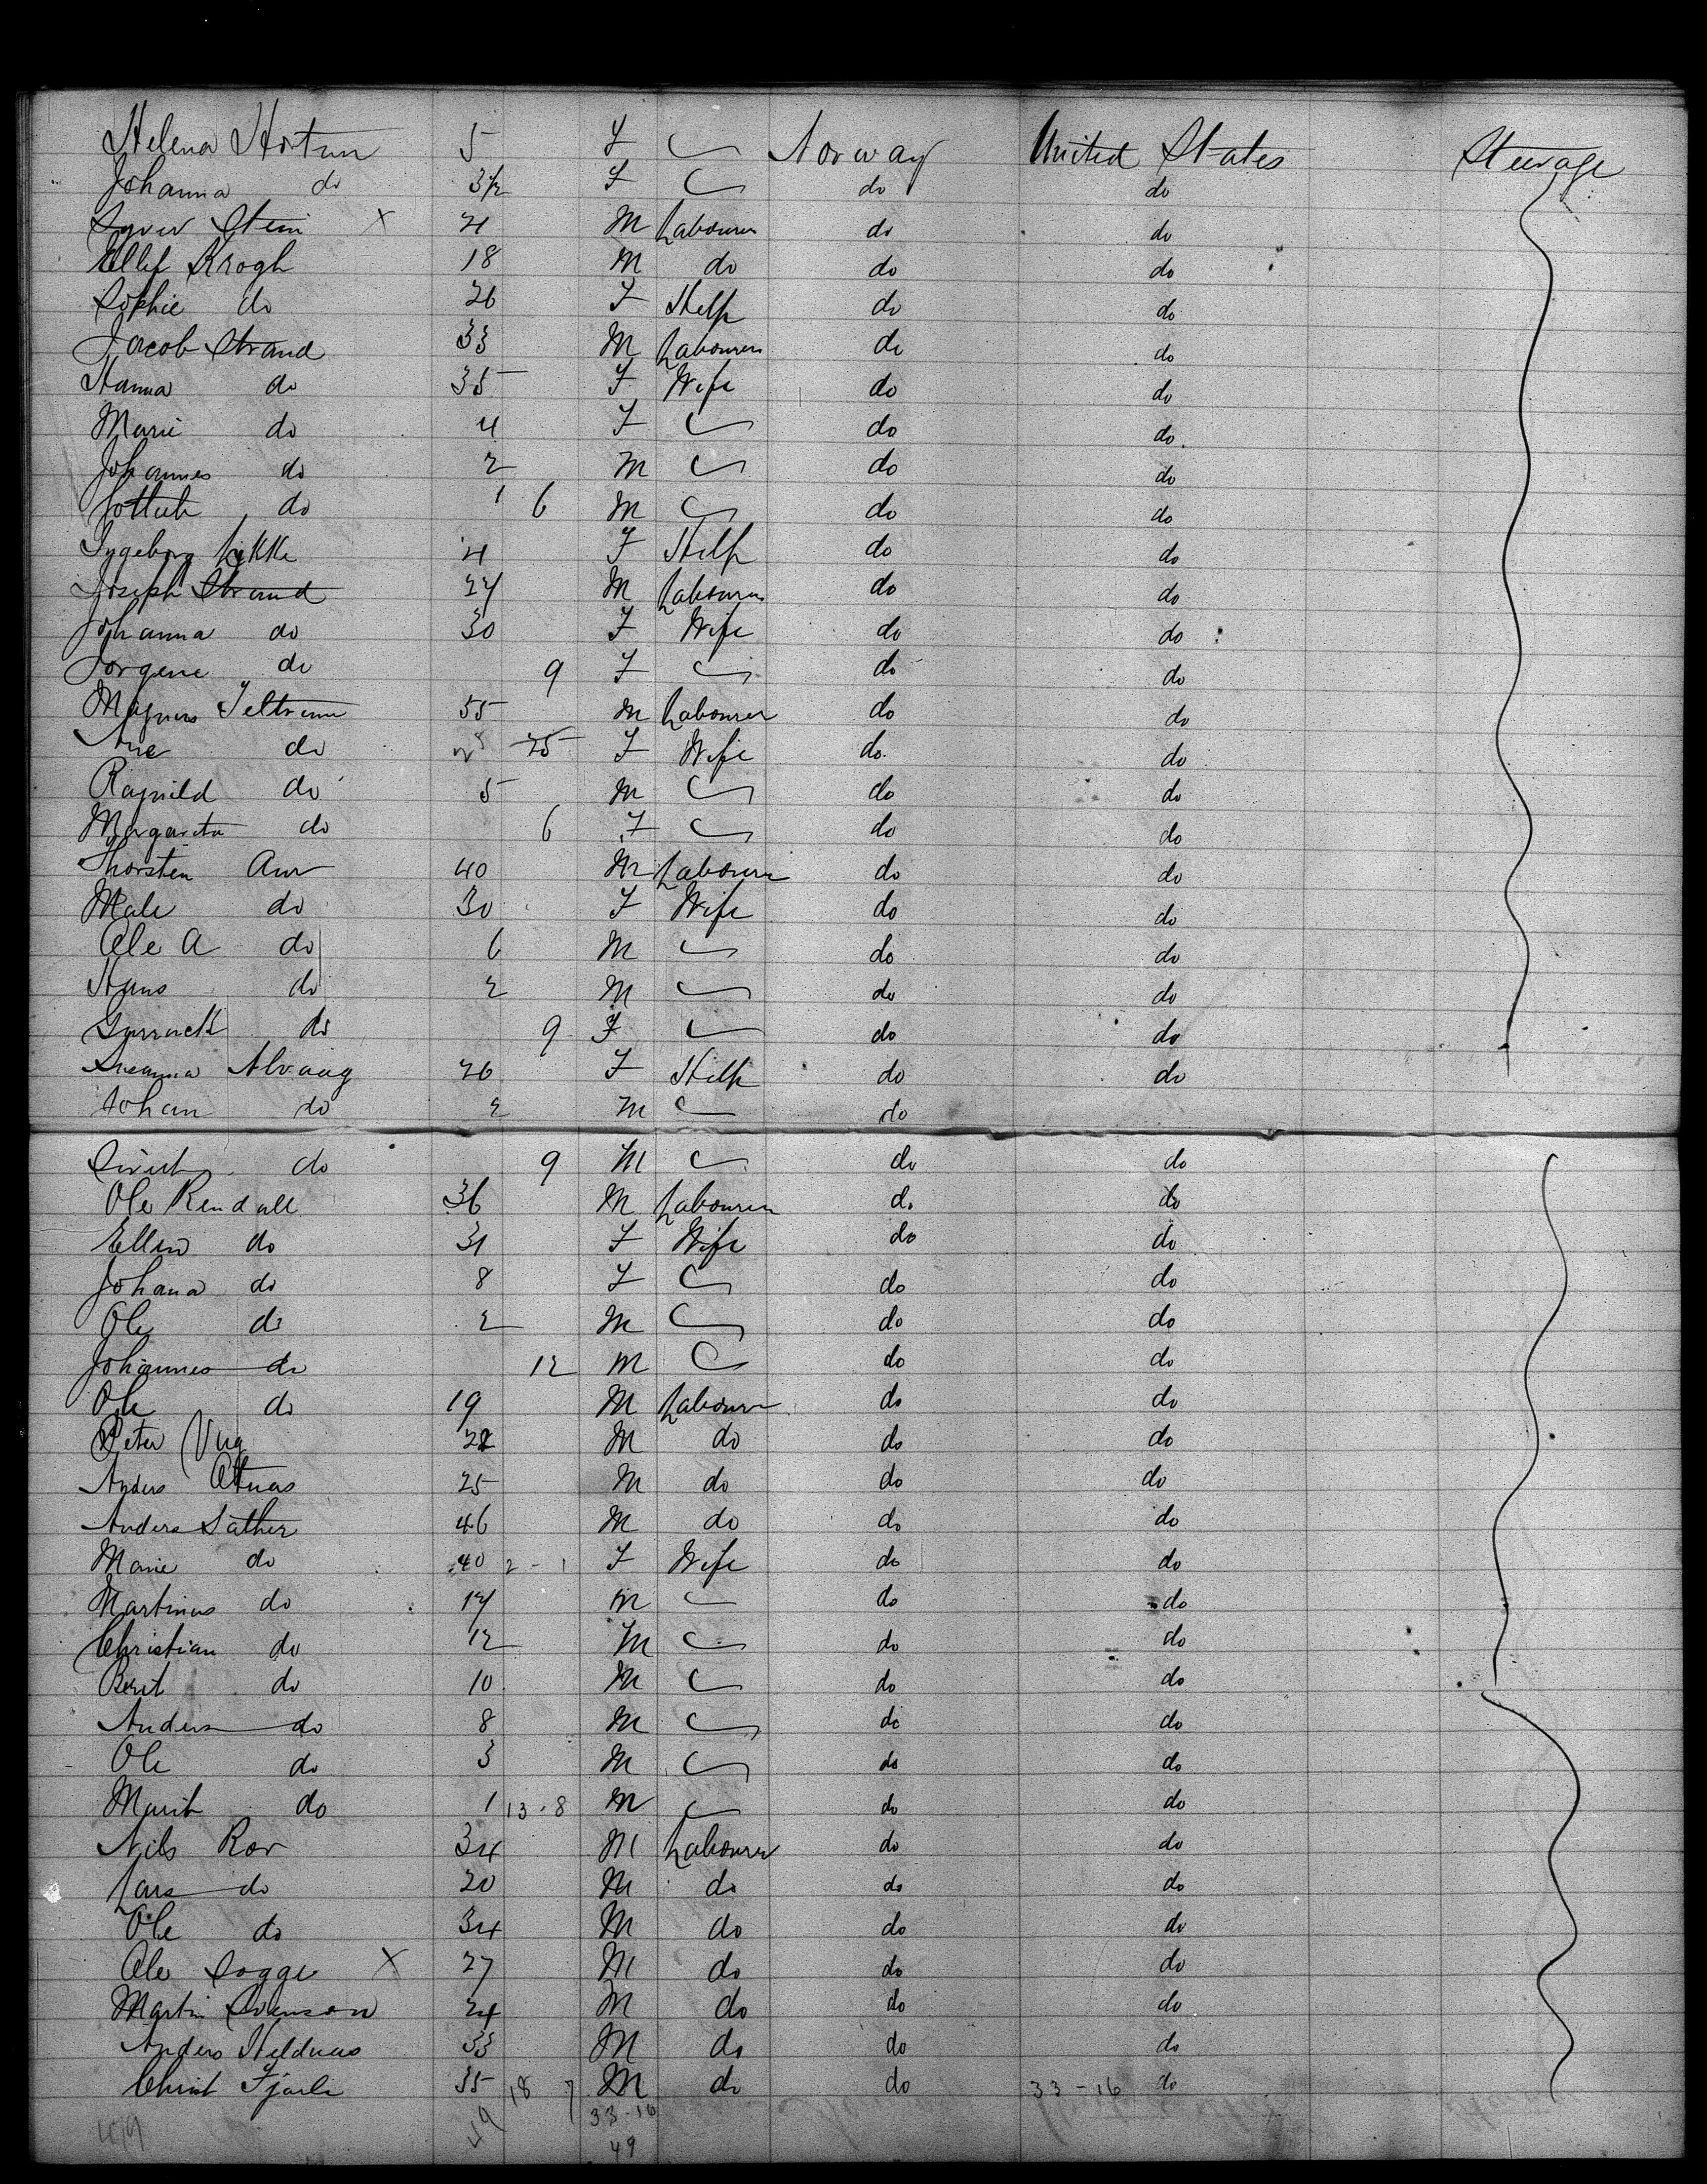 Helena Hortun 5 F Norway United States Steerage
Johanna do 3½ F do do
Syver Stein X 21 M Labourer do do
Ellef Krogh 18 M do do do
Sophie do 26 F Help do do
Jacob Strand 33 M Labourer do do
Hanna do 35 F Wife do do
Marie do 4 F do do
Johannes do 2 M do do
do 1 6 M do do
Ingeborg Lykke 21 F Help do do
Joseph Strand 27 M Labourer do do
Johanna do 30 F Wife do do
Jorgene do 9 F do do
Magnus 55 M Labourer do do
Ane do 25 F Wife do do
Ragnild do 5 M do do
Margareta do 6 F do do
Thorsten Aur 40 M Labourer do do
Male do 30 F Wife do do
Ole A do 6 M do do
Hans do 2 M do do
do 9 F do do
Alvaag 26 F Help do do
Johan do 2 M do
Sivert do 9 M do do
Ole Rendall 36 M Labourer do do
Ellen do 31 F Wife do do
Johana do 8 F do do
Ole do 2 M do do
Johannes do 12 M do do
Ole do 19 M Labourer do do
Peter Vug 22 M do do do
Anders 25 M do do do
Anders Sather 46 M do do do
Marie do 40 2 - 1 F Wife do do
Martinus do 14 M do do
Christian do 12 M do do
Berit do 10 M do do
Anders do 8 M do do
Ole do 3 M do do
Marit do 1 13 - 8 M do do
Nils Ror 34 M Labourer do do
Lars do 20 M do do do
Ole do 34 M do do do
Ole Sogge X 27 M do do do
Martin Svenson 24 M do do do
Anders Heldnas 33 M do do do
Christ Fjarli 35 18 7 M do do 33 - 16 do
419 49 33 - 16
49